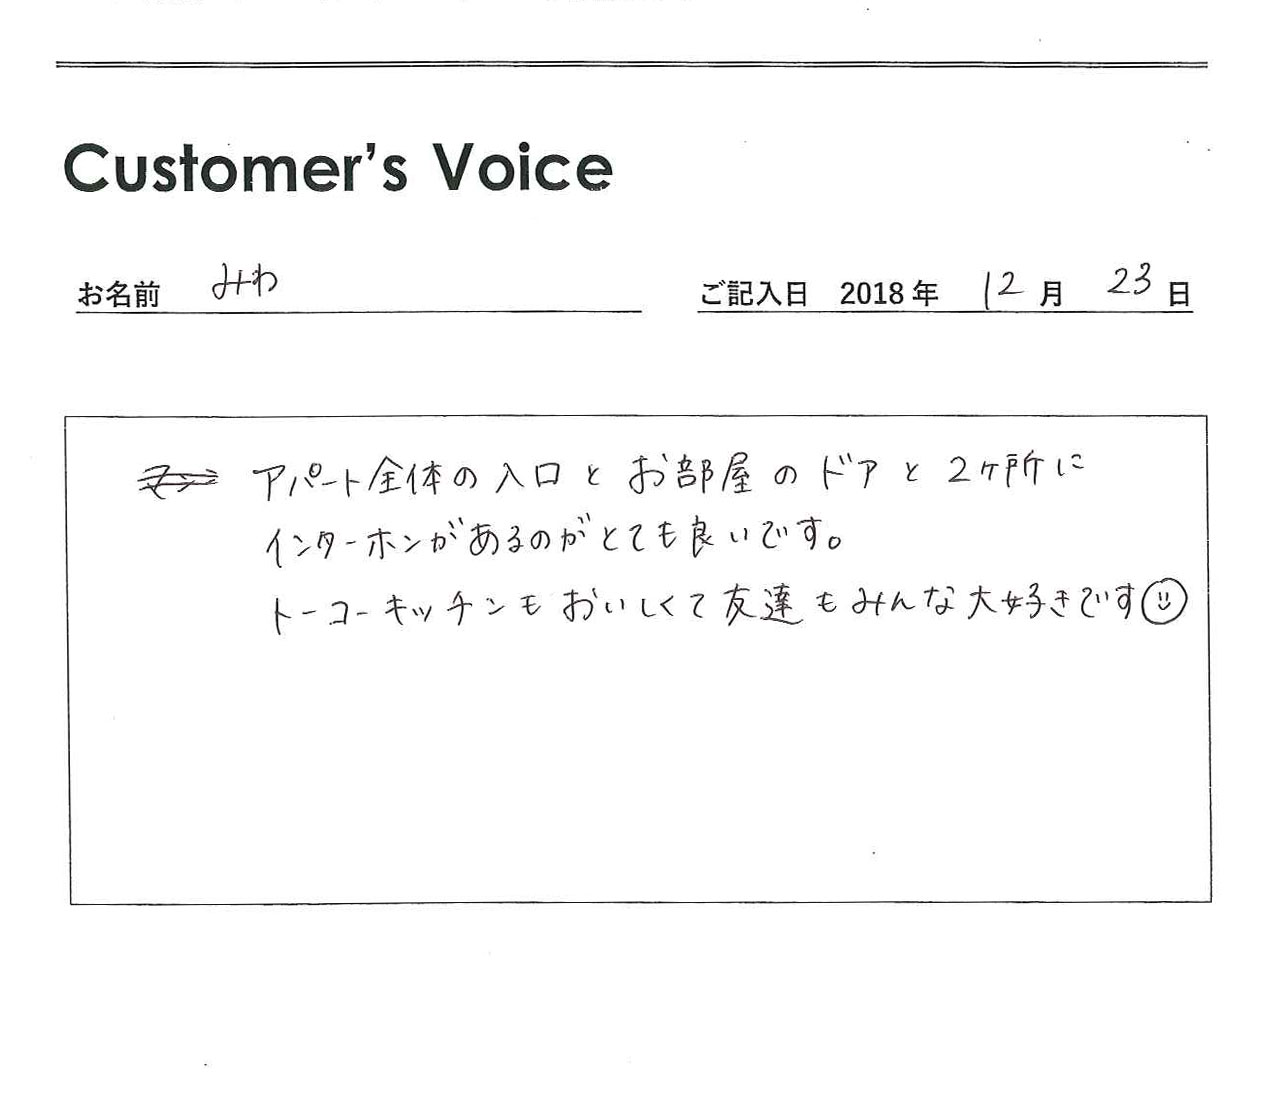 Customer's Voice
お名前 みわ
ご記入日 2018年 12月 23日
アパート全体の入口とお部屋のドアと2ヶ所に
インターホンがあるのがとても良いです。
トーコーキッチンもおいしくて友達もみんな大好きです☺